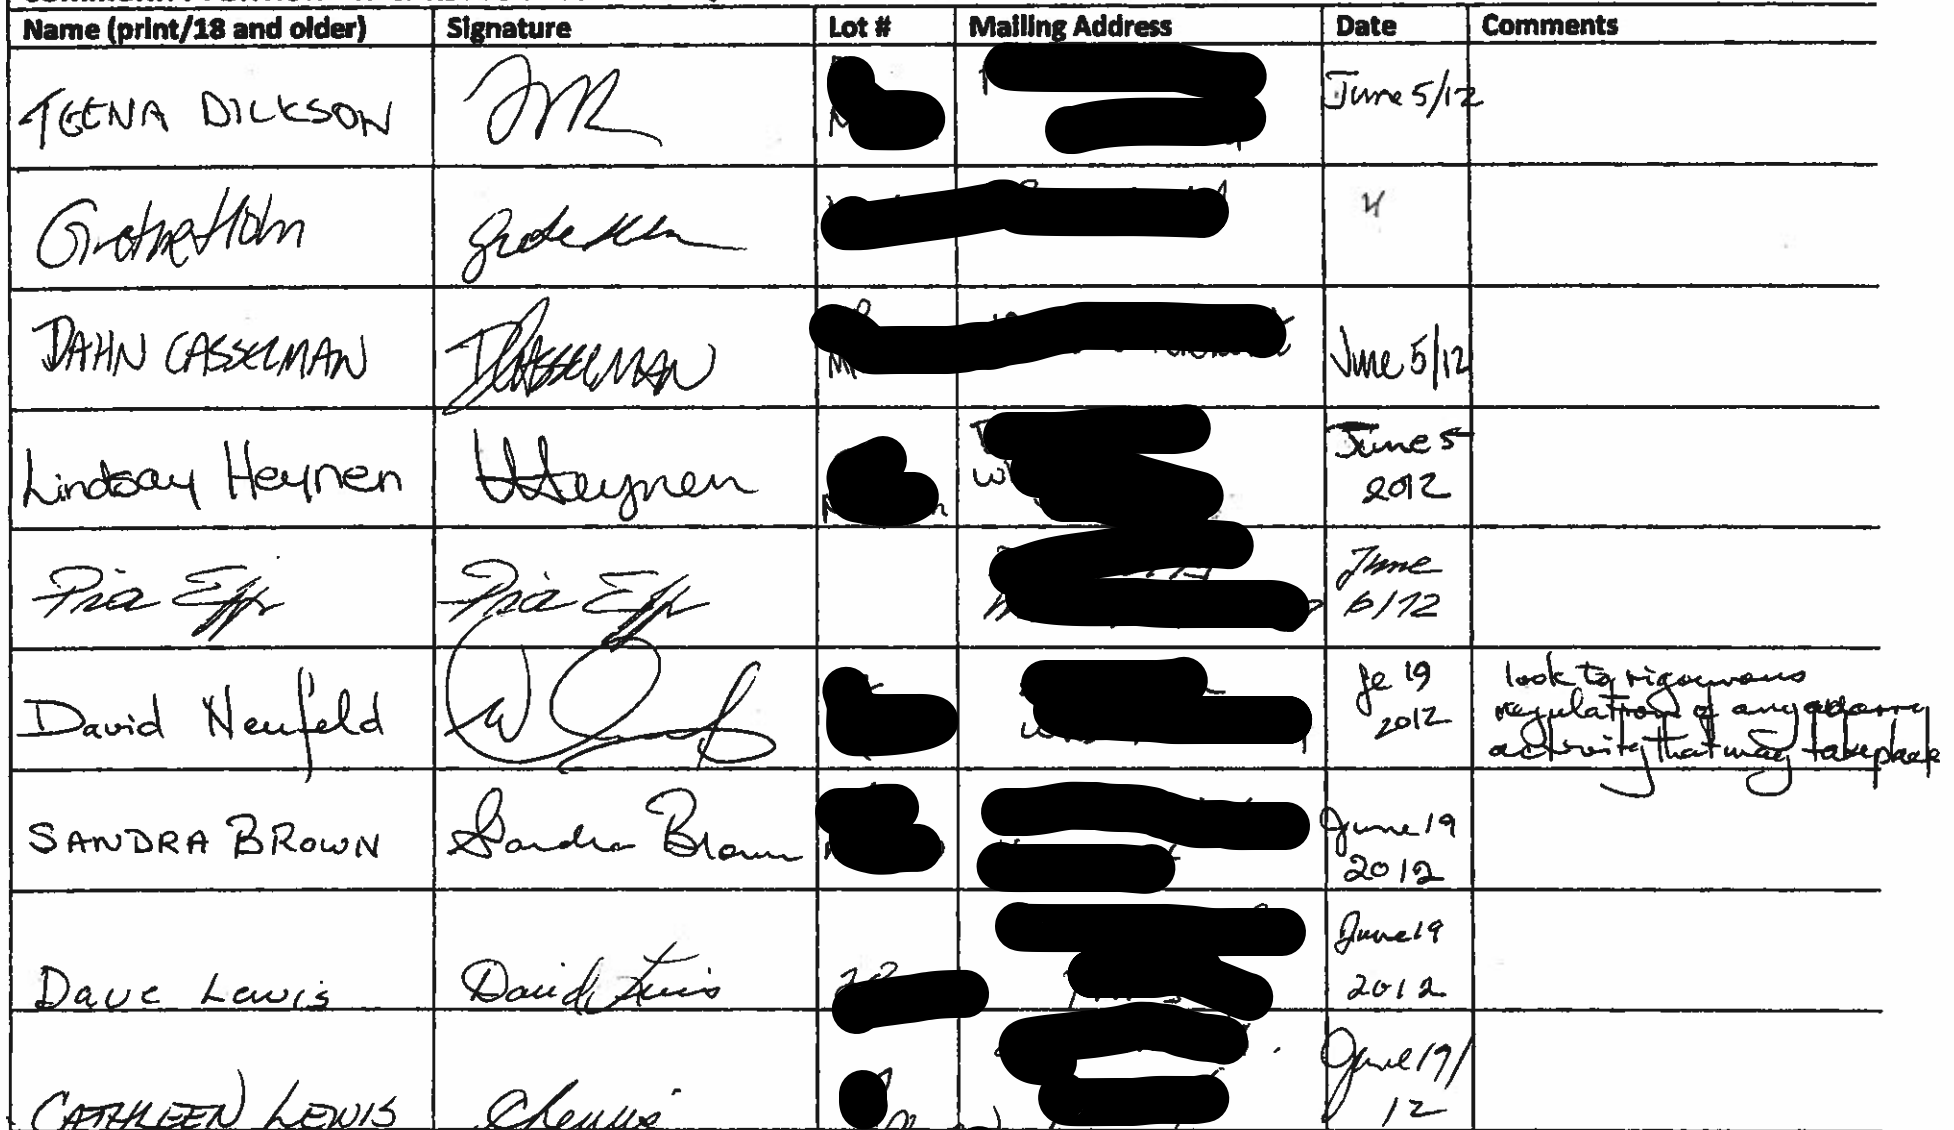 Name (print/18 and older) Signature Lot # Mailing Address Date Comments
TEENA DICKSON June 5/12
Grethe Holm
DAHN CASSELMAN DCASSELMAN June 5/12
Lindsay Heynen LHeynen June 5
2012
Pia Epp Pia Epp June
6/12
David Neufeld Je 19
2012
look to rigourous
regulation of any
activity that may take place
SANDRA BROWN Sandra Brown June 19
2012
Dave Lewis David Lewis June 19
2012
CATHLEEN LEWIS June 19/
12